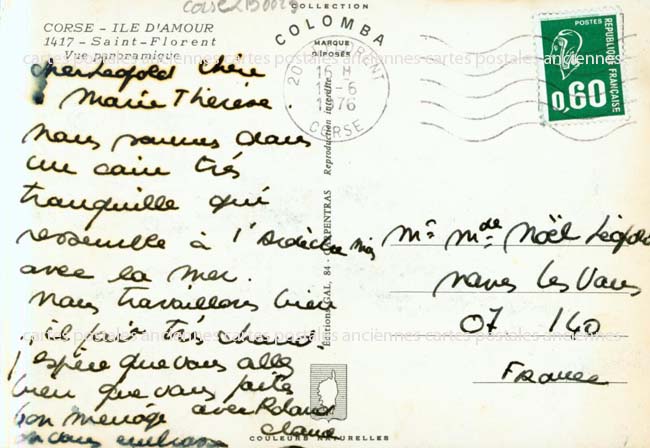 corse2B0020
CORSE - ILE D'AMOUR
1417 - Saint-Florent
Vue panoramique
cher Léopold chère
Marie Thérèse.
nous sommes dans
un coin très
tranquille qui
ressemble à l'Ardèche mais
avec la mer.
nous travaillons bien
il fait très chaud.
j'espère que vous allez
bien que vous faite
bon ménage avec Roland
on vous embrasse
COLLECTION
COLOMBA
MARQUE
DÉPOSÉE
Reproduction interdite
Editions GAL, 84 - CARPENTRAS
COULEURS NATURELLES
FLORENT
16 H
6
1976
CORSE
POSTES
REPUBLIQUE FRANÇAISE
0,60
Mr Mde Noël Léopold
naves les Vans
07 140
France
cartes postales anciennes cartes postales anciennes cartes postales anciennes
cartes postales anciennes cartes postales anciennes cartes postales anciennes